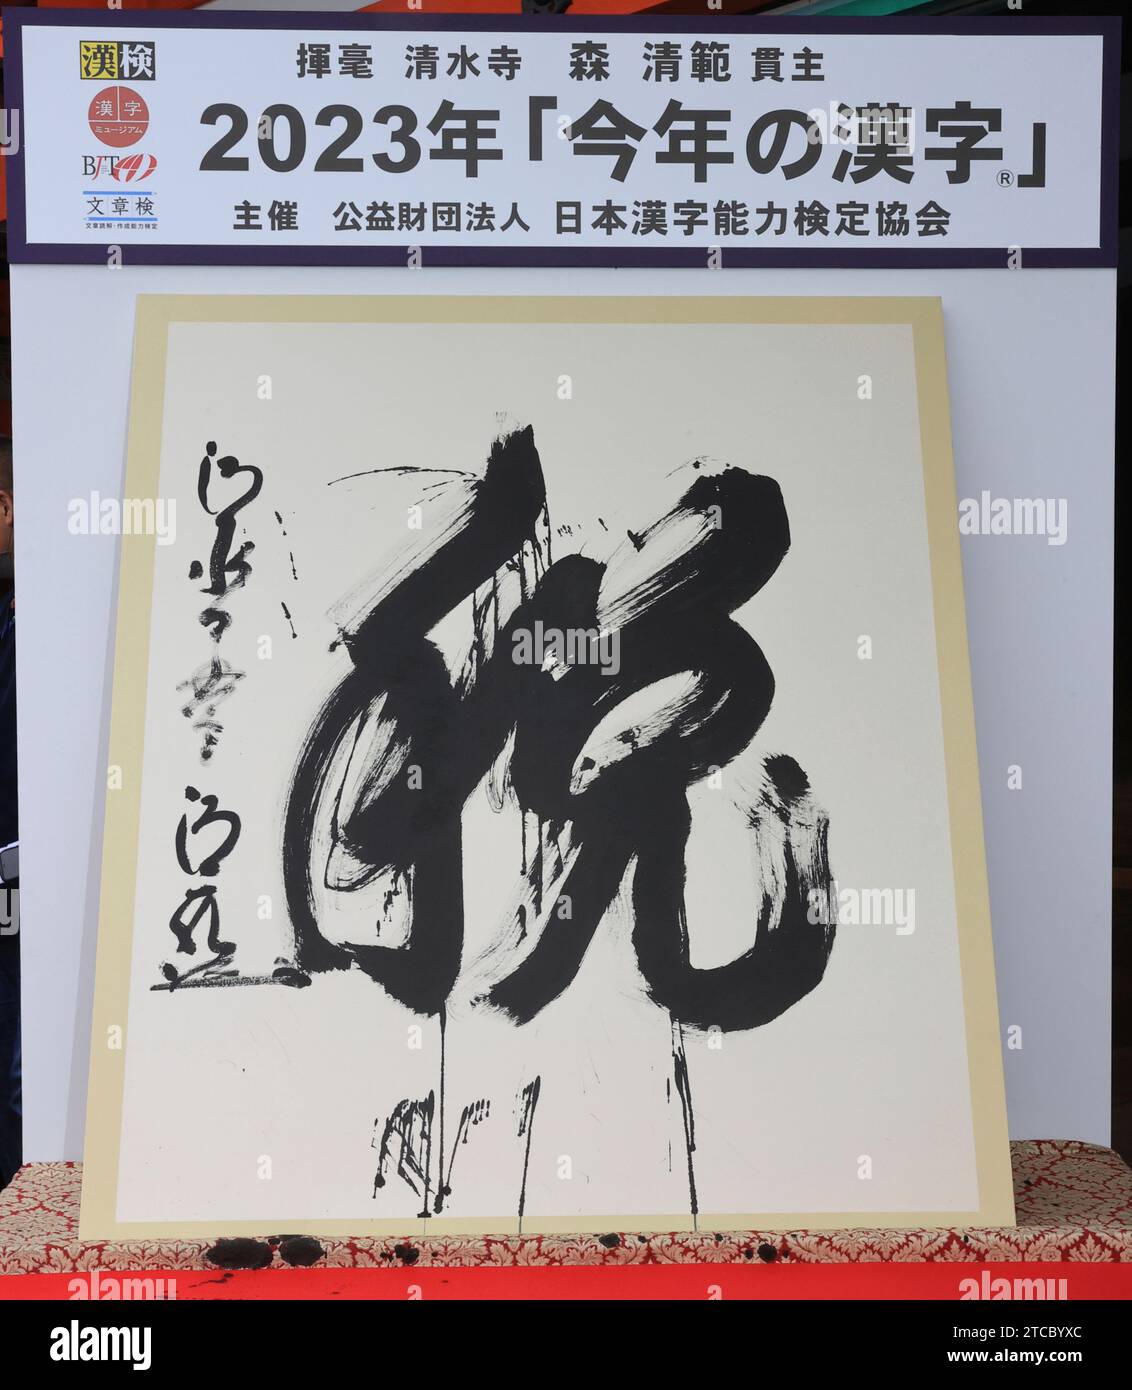 漢検
漢字
ミュージアム
BJT
文章検
文章読解・作成能力検定
揮毫 清水寺 森 清範 貫主
2023年「今年の漢字®」
主催 公益財団法人 日本漢字能力検定協会
税
清水寺 清範
alamy
Image ID: 2TCBYXC
www.alamy.com